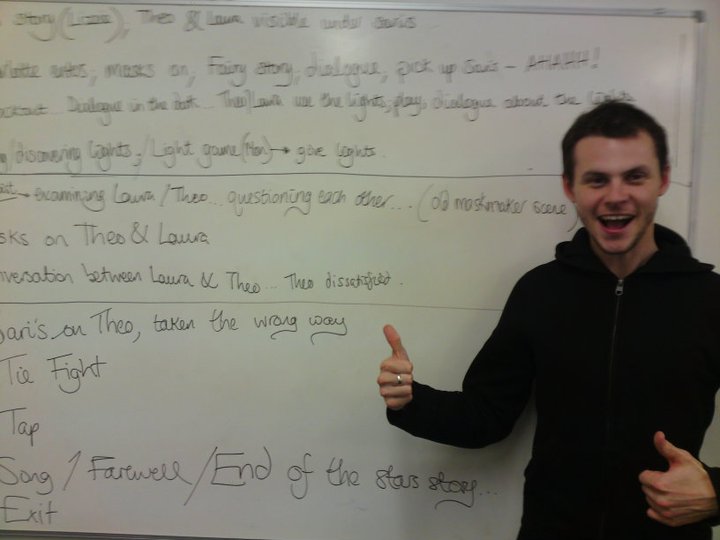 story (Lizzie), Theo & Laura visible under saris
enters, masks on, Fairy story, dialogue, pick up Saris - AHAHH!
Dialogue in the dark... Theo/Laura use the lights, play, dialogue about the lights
/discovering lights, /Light game (Mon) → give lights.
→ examining Laura / Theo... questioning each other... (old maskmaker scene)
sks on Theo & Laura
nversation between Laura & Theo... Theo dissatisfied.
Sari's on Theo, taken the wrong way
Tie Fight
Tap
Song / Farewell / End of the stars story...
Exit